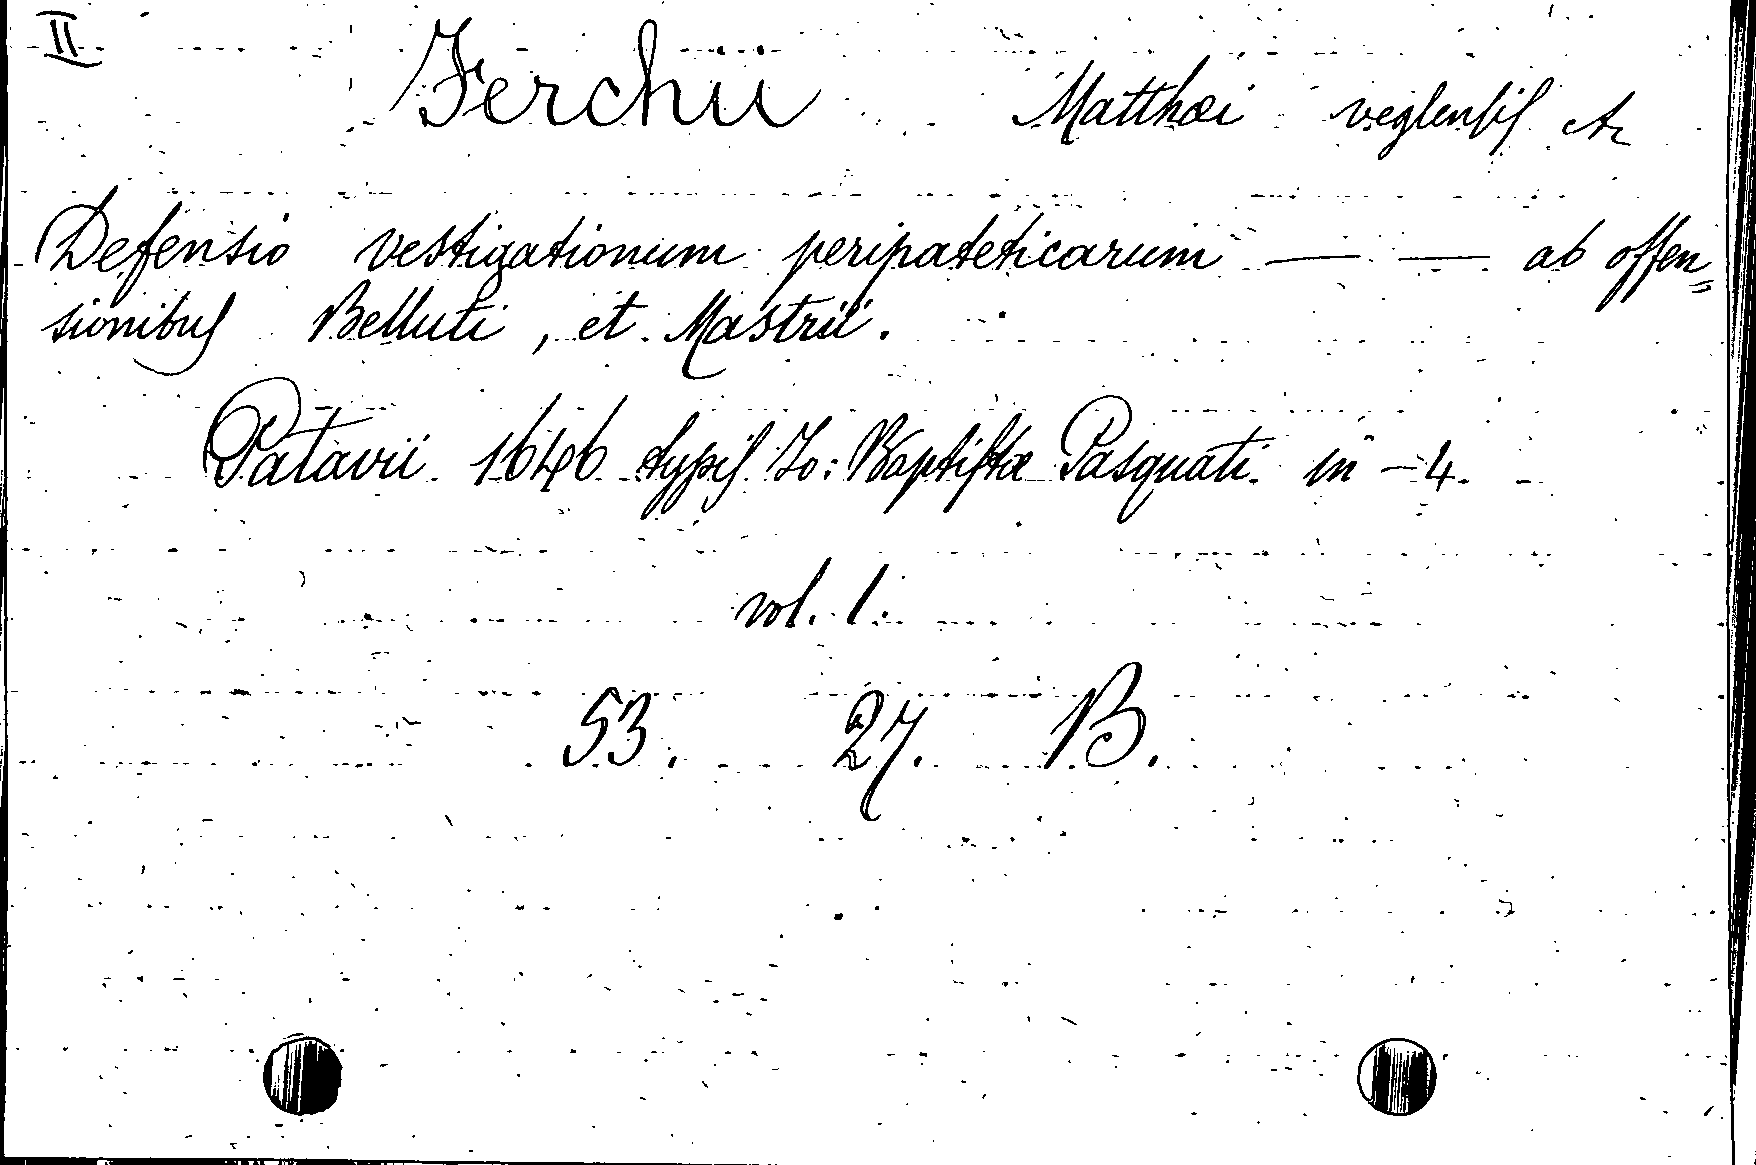 II
Ferchii Matthæi veglensis
Defensio vestigationum peripateticarum — — ab offen„
sionibus Belluti, et Mastrii.
Patavii 1646 typis Jo: Baptistæ Pasquati in – 4.
vol. 1.
53. 27. B.